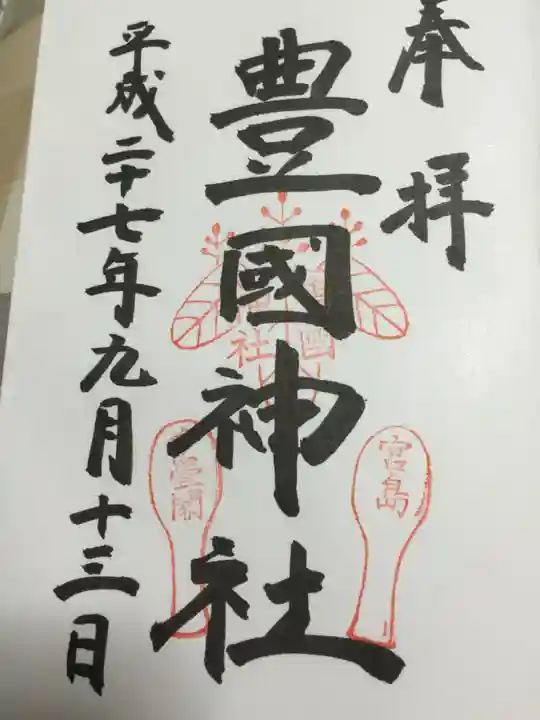 奉拝
豊國神社
平成二十七年九月十三日
宮島
豊國
神社
閣